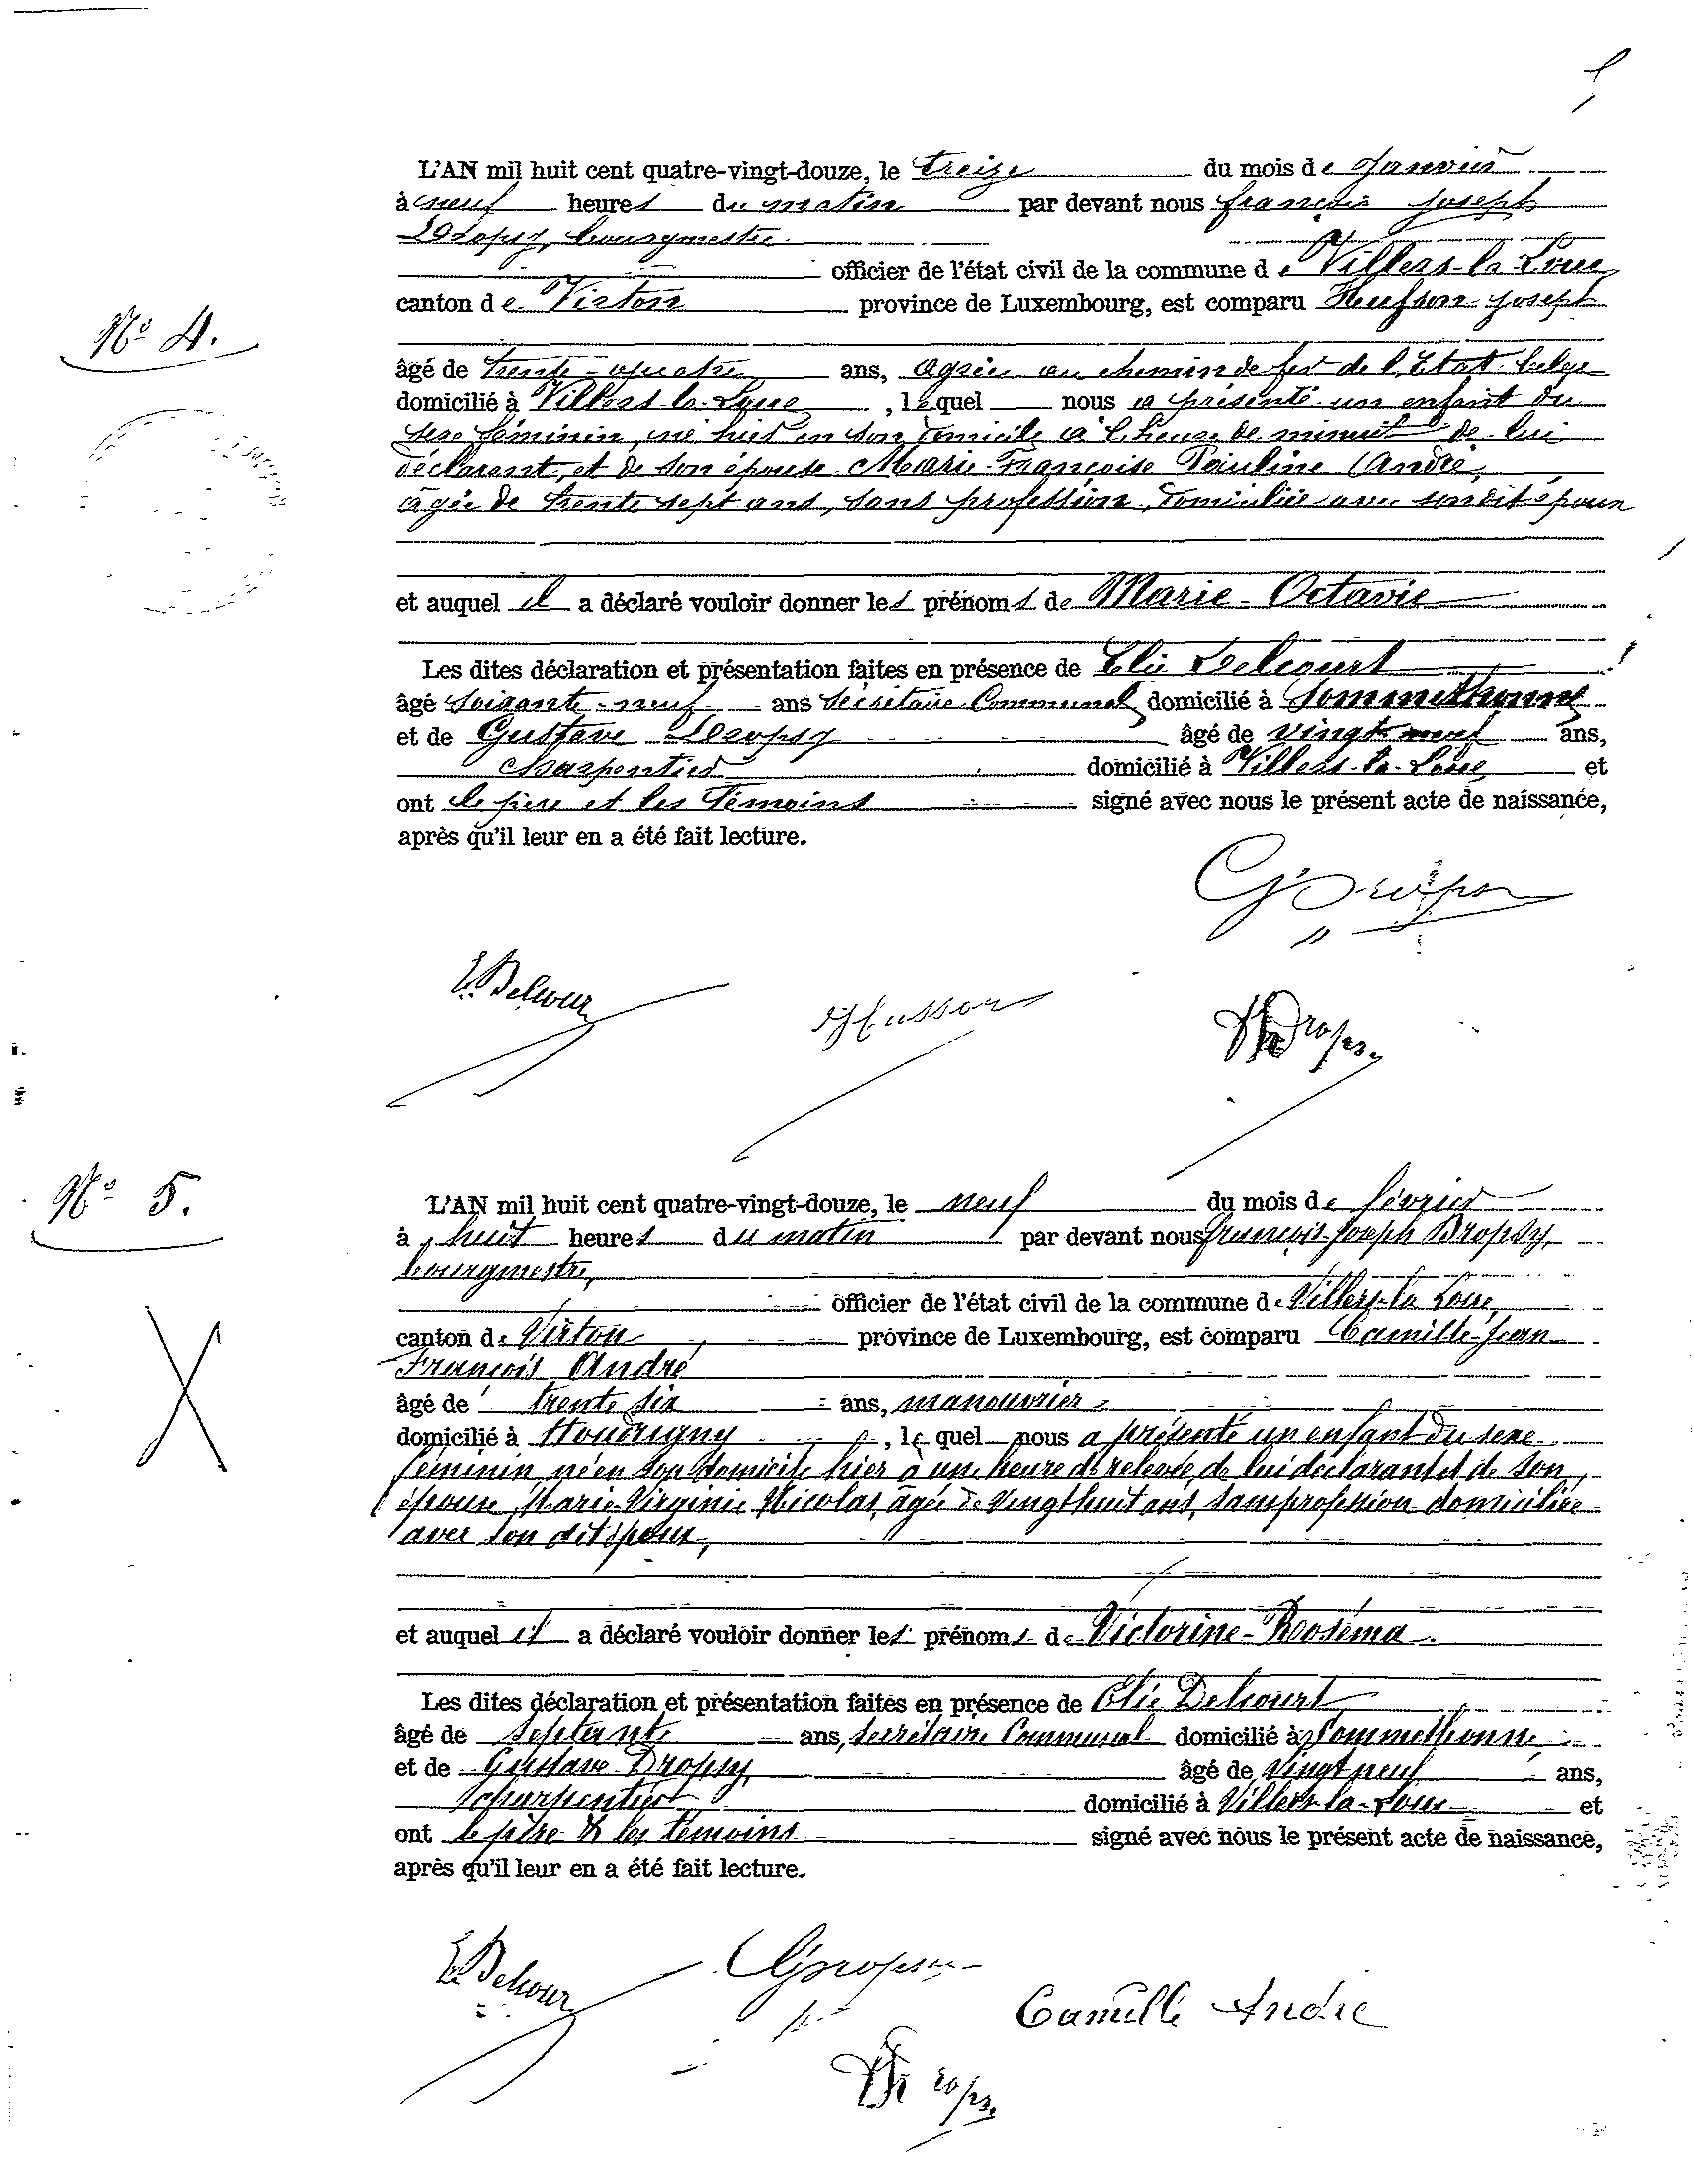 L'AN mil huit cent quatre-vingt-douze, le treize du mois de Janvier
à neuf heures du matin par devant nous François Joseph
Dropsy, bourgmestre
officier de l'état civil de la commune de Villers-la-Loue
canton de Virton province de Luxembourg, est comparu Husson Joseph
N° 4.
âgé de trente-quatre ans, agréé au chemin de fer de l'Etat belge
domicilié à Villers-la-Loue, lequel nous a présenté un enfant du
sexe féminin, né hier en son domicile à l'heure de minuit de lui
déclarant, et de son épouse Marie-Françoise Pauline André,
âgée de trente sept ans, sans profession, domiciliée avec son dit époux
et auquel il a déclaré vouloir donner les prénoms de Marie-Octavie
Les dites déclaration et présentation faites en présence de Elie Delcourt
âgé soixante-neuf ans secrétaire Communal domicilié à Sommethonne
et de Gustave Dropsy âgé de vingt neuf ans,
charpentier domicilié à Villers-la-Loue et
ont le père et les témoins signé avec nous le présent acte de naissance,
après qu'il leur en a été fait lecture.
G Dropsy
E. Delcour
J Husson
Dropsy
N° 5.
L'AN mil huit cent quatre-vingt-douze, le neuf du mois de février
à huit heures du matin par devant nous François-Joseph Dropsy,
bourgmestre,
officier de l'état civil de la commune de Villers-la-Loue,
canton de Virton, province de Luxembourg, est comparu Camille-Jean
François André
âgé de trente six ans, manouvrier
domicilié à Houdrigny, lequel nous a présenté un enfant du sexe
féminin, né en son domicile hier à une heure de relevée, de lui déclarant et de son
épouse, Marie-Virginie Nicolas, âgée de vingt huit ans, sans profession domiciliée
avec son dit époux,
et auquel il a déclaré vouloir donner les prénoms de Victorine-Roséma.
Les dites déclaration et présentation faites en présence de Elie Delcourt
âgé de septante ans, secrétaire Communal domicilié à Sommethonne,
et de Gustave Dropsy, âgé de vingt neuf ans,
charpentier domicilié à Villers-la-Loue et
ont le père & les témoins signé avec nous le présent acte de naissance,
après qu'il leur en a été fait lecture.
E. Delcour
G Dropsy
Camille André
Dropsy